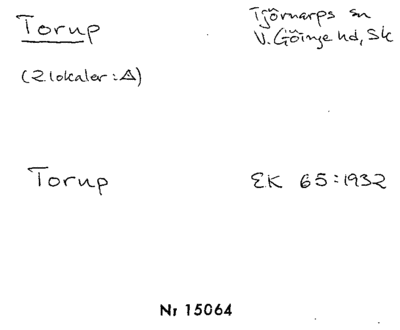 Torup
Tjörnarps sn
V. Göinge hd, Sk
(2 lokaler : ∆)
Torup
EK 65:1932
Nr 15064